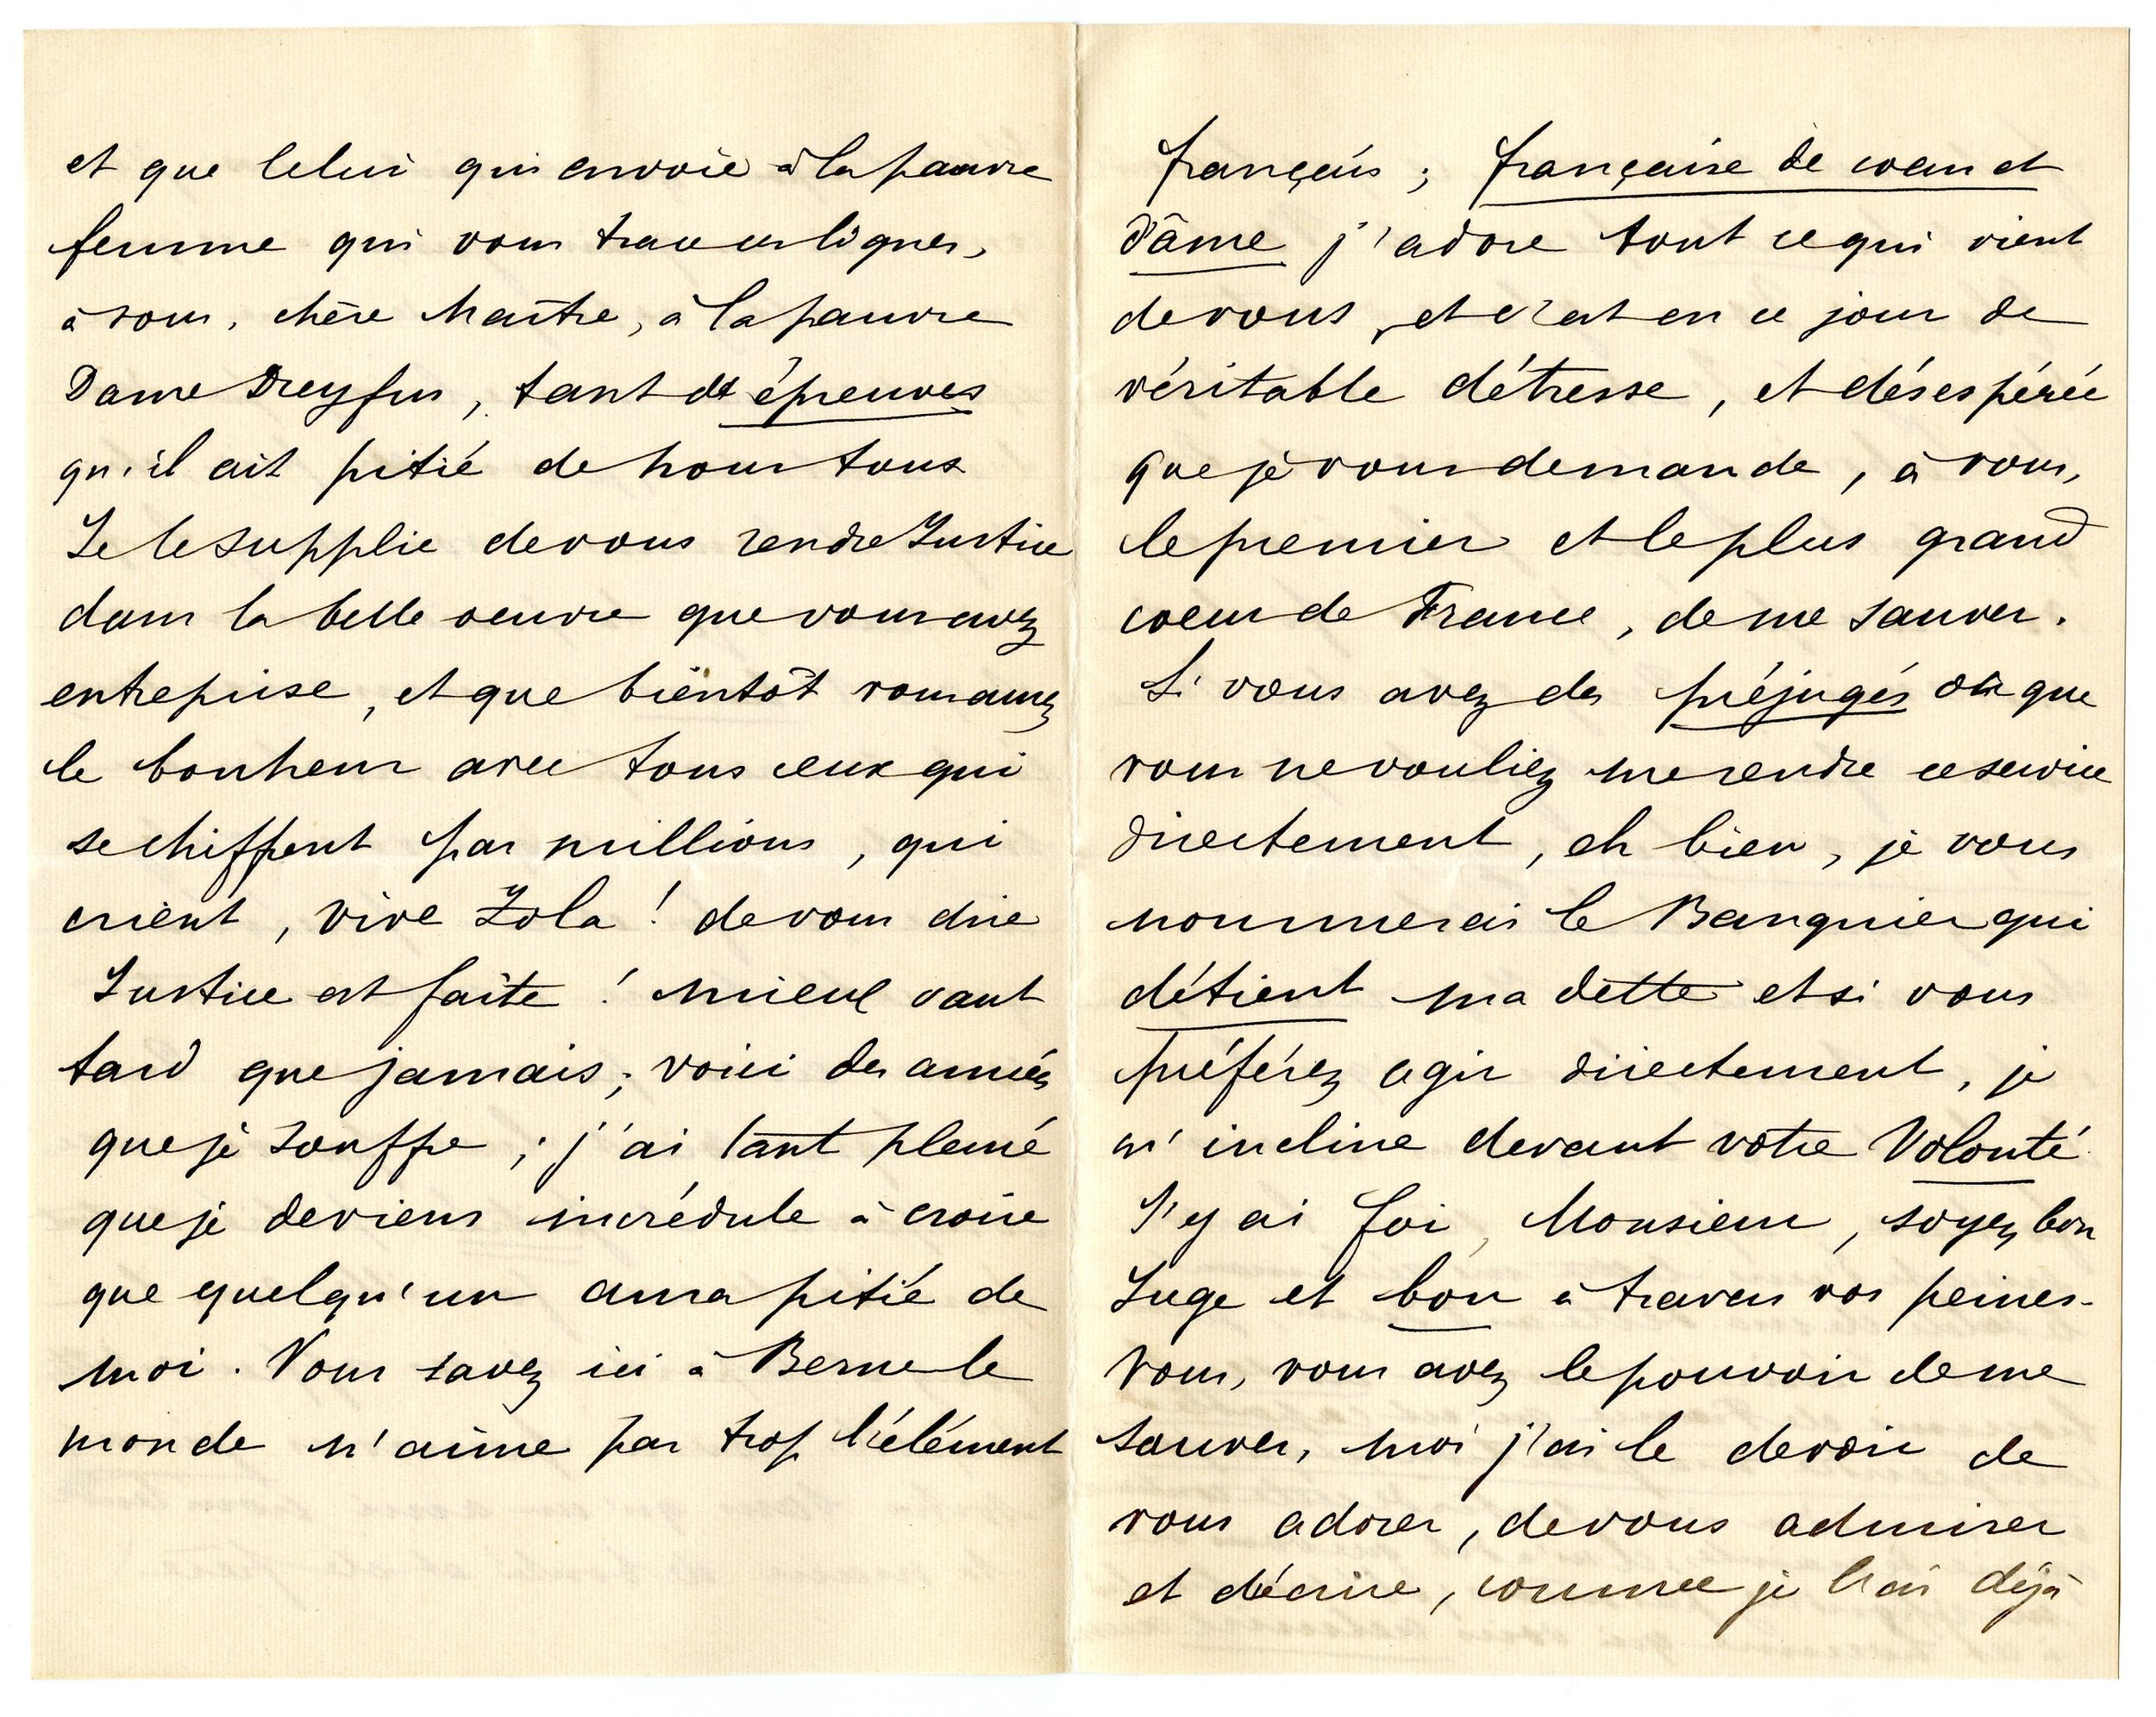 et que Celui qui envoie à la pauvre
femme qui vous trace ces lignes,
à vous, chère Maître, à la pauvre
Dame Dreyfus, tant d'épreuves
qu'il ait pitié de nous tous
Je le supplie de vous rendre Justice
dans la belle oeuvre que vous avez
entreprise, et que bientôt vous aurez
le bonheur avec tous ceux qui
se chiffrent par millions, qui
crient, vive Zola! de vous dire
Justice est faite! mieux vaut
tard que jamais; voici des années
que je souffre; j'ai tant pleuré
que je deviens incrédule à croire
que quelqu'un aura pitié de
moi. Vous savez ici à Berne le
monde n'aime pas trop l'élément
français; française de coeur et
d'âme j'adore tout ce qui vient
de vous, et c'est en ce jour de
véritable détresse, et désespérée
que je vous demande, à vous,
le premier et le plus grand
coeur de France, de me sauver.
Si vous avez des préjugés où que
vous ne vouliez me rendre ce service
directement, eh bien, je vous
nommerais le Banquier qui
détient ma dette et si vous
préférez agir directement, je
m'incline devant votre Volonté
J'y ai foi, Monsieur, soyez bon
Juge et bon à travers vos peines.
Vous, vous avez le pouvoir de me
sauver, moi j'ai le devoir de
vous adorer, de vous admirer
et d'écrire, comme je l'ai déjà